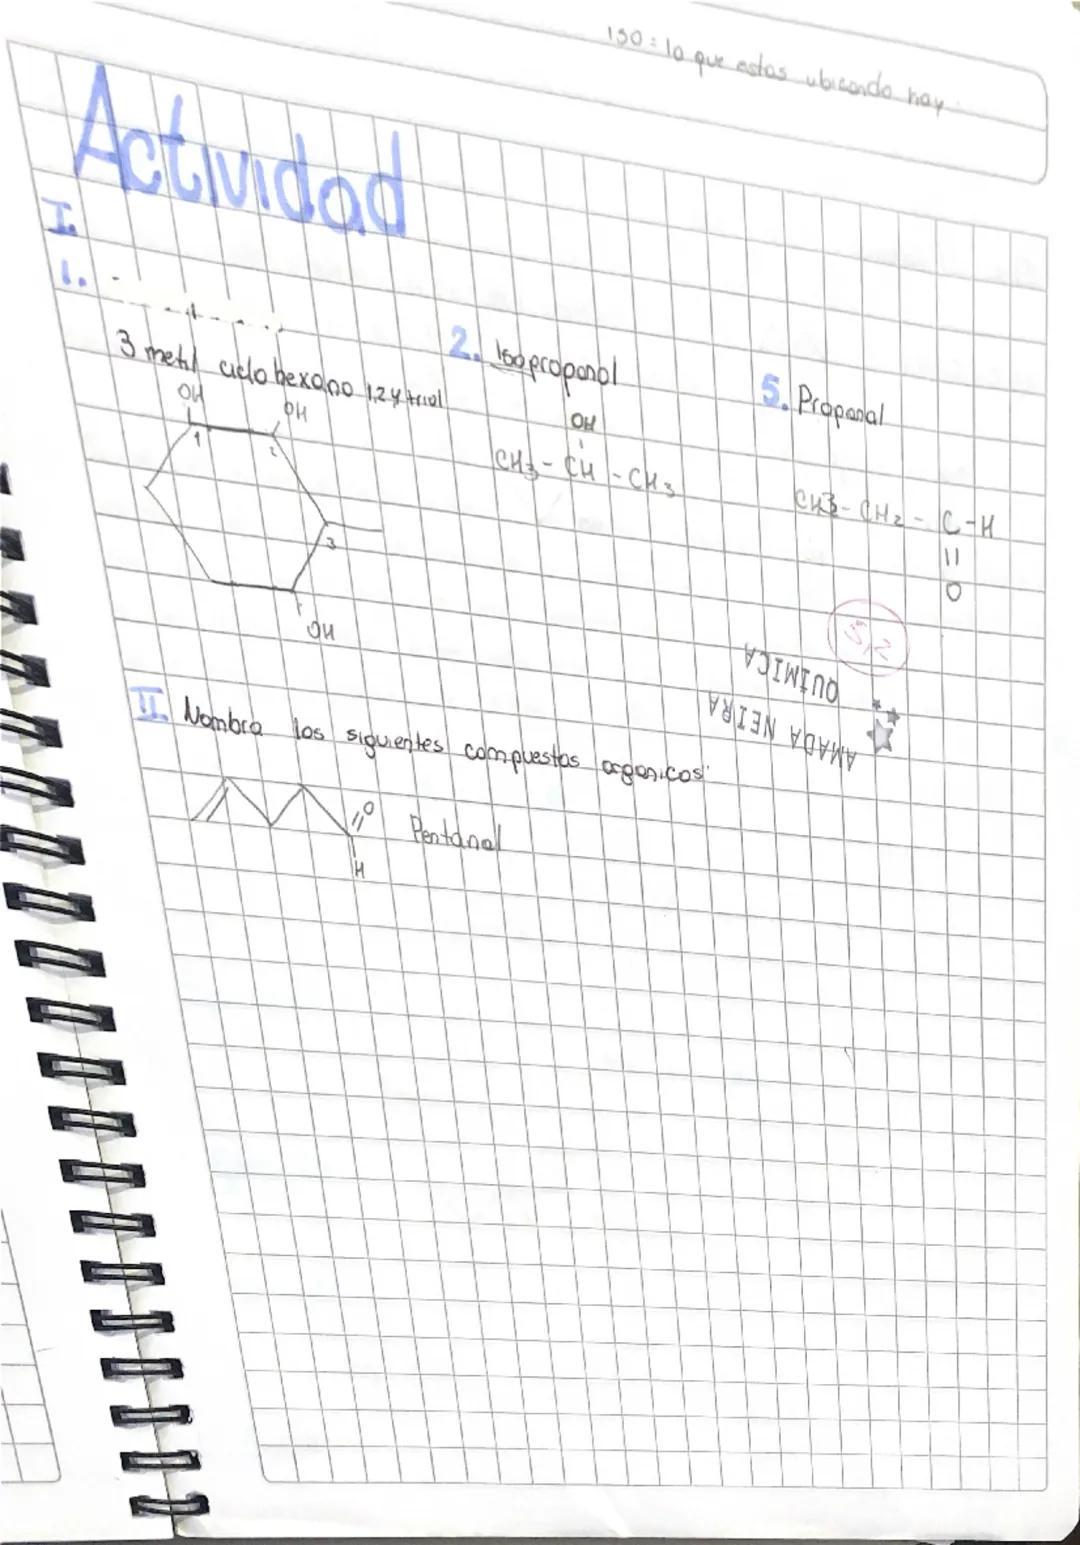 iso = lo que estas ubicando hay
Actividad
I.
1.
3 metil ciclo hexano 1,2,4 triol
OH
OH
1
2
3
OH
2. Isopropanol
OH
CH3 - CH - CH3
5. Propanal
CH3 - CH2 - C - H
||
O
AMADA NEIRA
QUIMICA
II. Nombra los siguientes compuestos organicos:
O
H
Pentanal